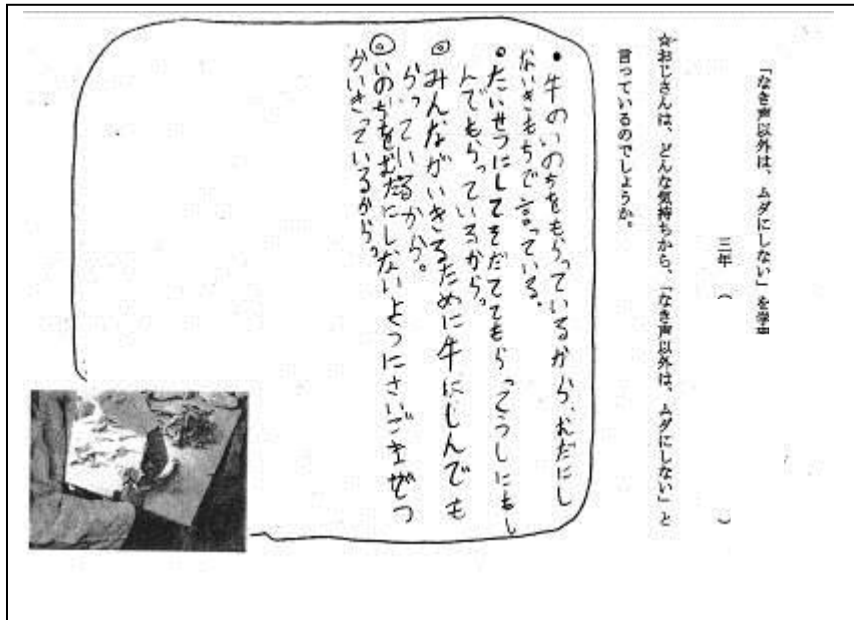 「なき声以外は、ムダにしない」を学
三年 （ ）
☆おじさんは、どんな気持ちから、「なき声以外は、ムダにしない」と
言っているのでしょうか。
• 牛のいのちをもらっているから、むだにし
ないきもちで言っている。
• たいせつにしてそだててもらってうしにもし
んでもらっているから。
◎ みんながいきるために牛にしんでも
らっているから。
◎ いのちをむだにしないようにさいごまでつ
かいきっているから。